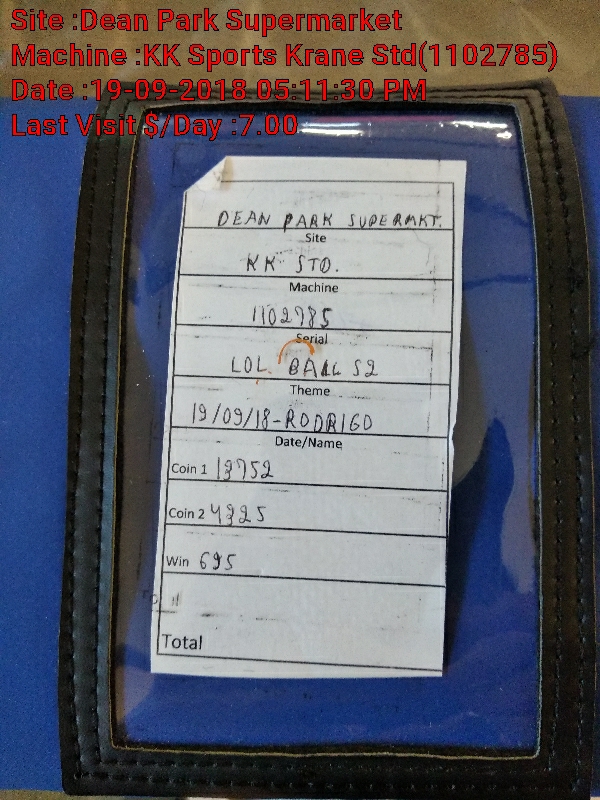 Site :Dean Park Supermarket
Machine :KK Sports Krane Std(1102785)
Date :19-09-2018 05:11:30 PM
Last Visit $/Day :7.00
DEAN PARK SUPERMKT.
Site
KK STD.
Machine
1102785
Serial
LOL BALL S2
Theme
19/09/18-RODRIGO
Date/Name
Coin 1 13752
Coin 2 4325
Win 695
Total